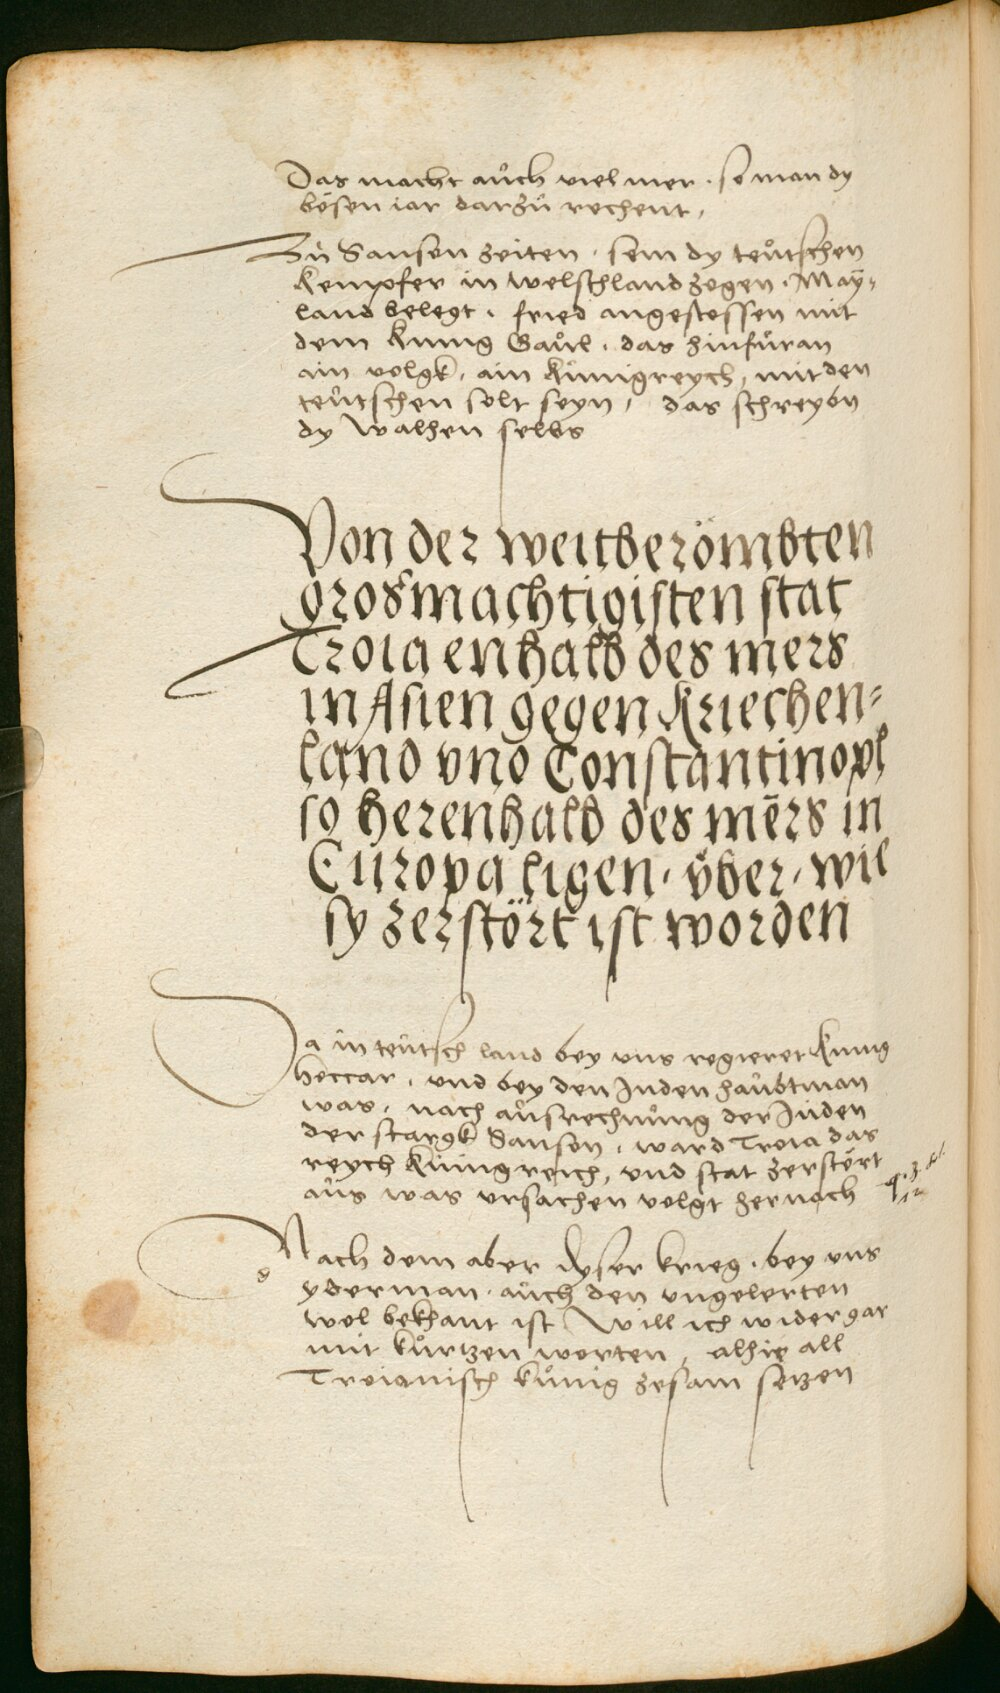 Das macht aůch viel mer · so man dy
bösen iar darzů rechent,
Zů Sanson zeiten · sein dy teůtschen
Kempfer in welschland zogen · Maÿ-
land belegt · fried angestossen mit
dem Kunig Gaůl · das hinfůran
ain volgk, ain Künigreych, mit den
teůtschen solt seyn, das schreybn
dy Walhen selbs
Von der weitberömbten
grosmachtigisten stat
Troia enhalb des mers
in Asien gegen Kriechen-
land vnd Constantinopl
so herenhalb des mers in
Europa ligen · vber · wie
sy zerstört ist worden
Da in teůtsch land bey vns regieret Kunig
Heccar · vnd bey den Juden haůbtman
was, nach aůsrechnůng der Juden
der stargk Sanson, ward Troia das
reych Künigreich, vnd stat zerstört
aůs was vrsachen volgt hernach
Nach dem aber dyser krieg · bey vns
yderman · aůch den vngelerten
wol bekhant ist Will ich wider gar
mit kůrtzen worten, alhie all
Troianisch kůnig zesam setzen